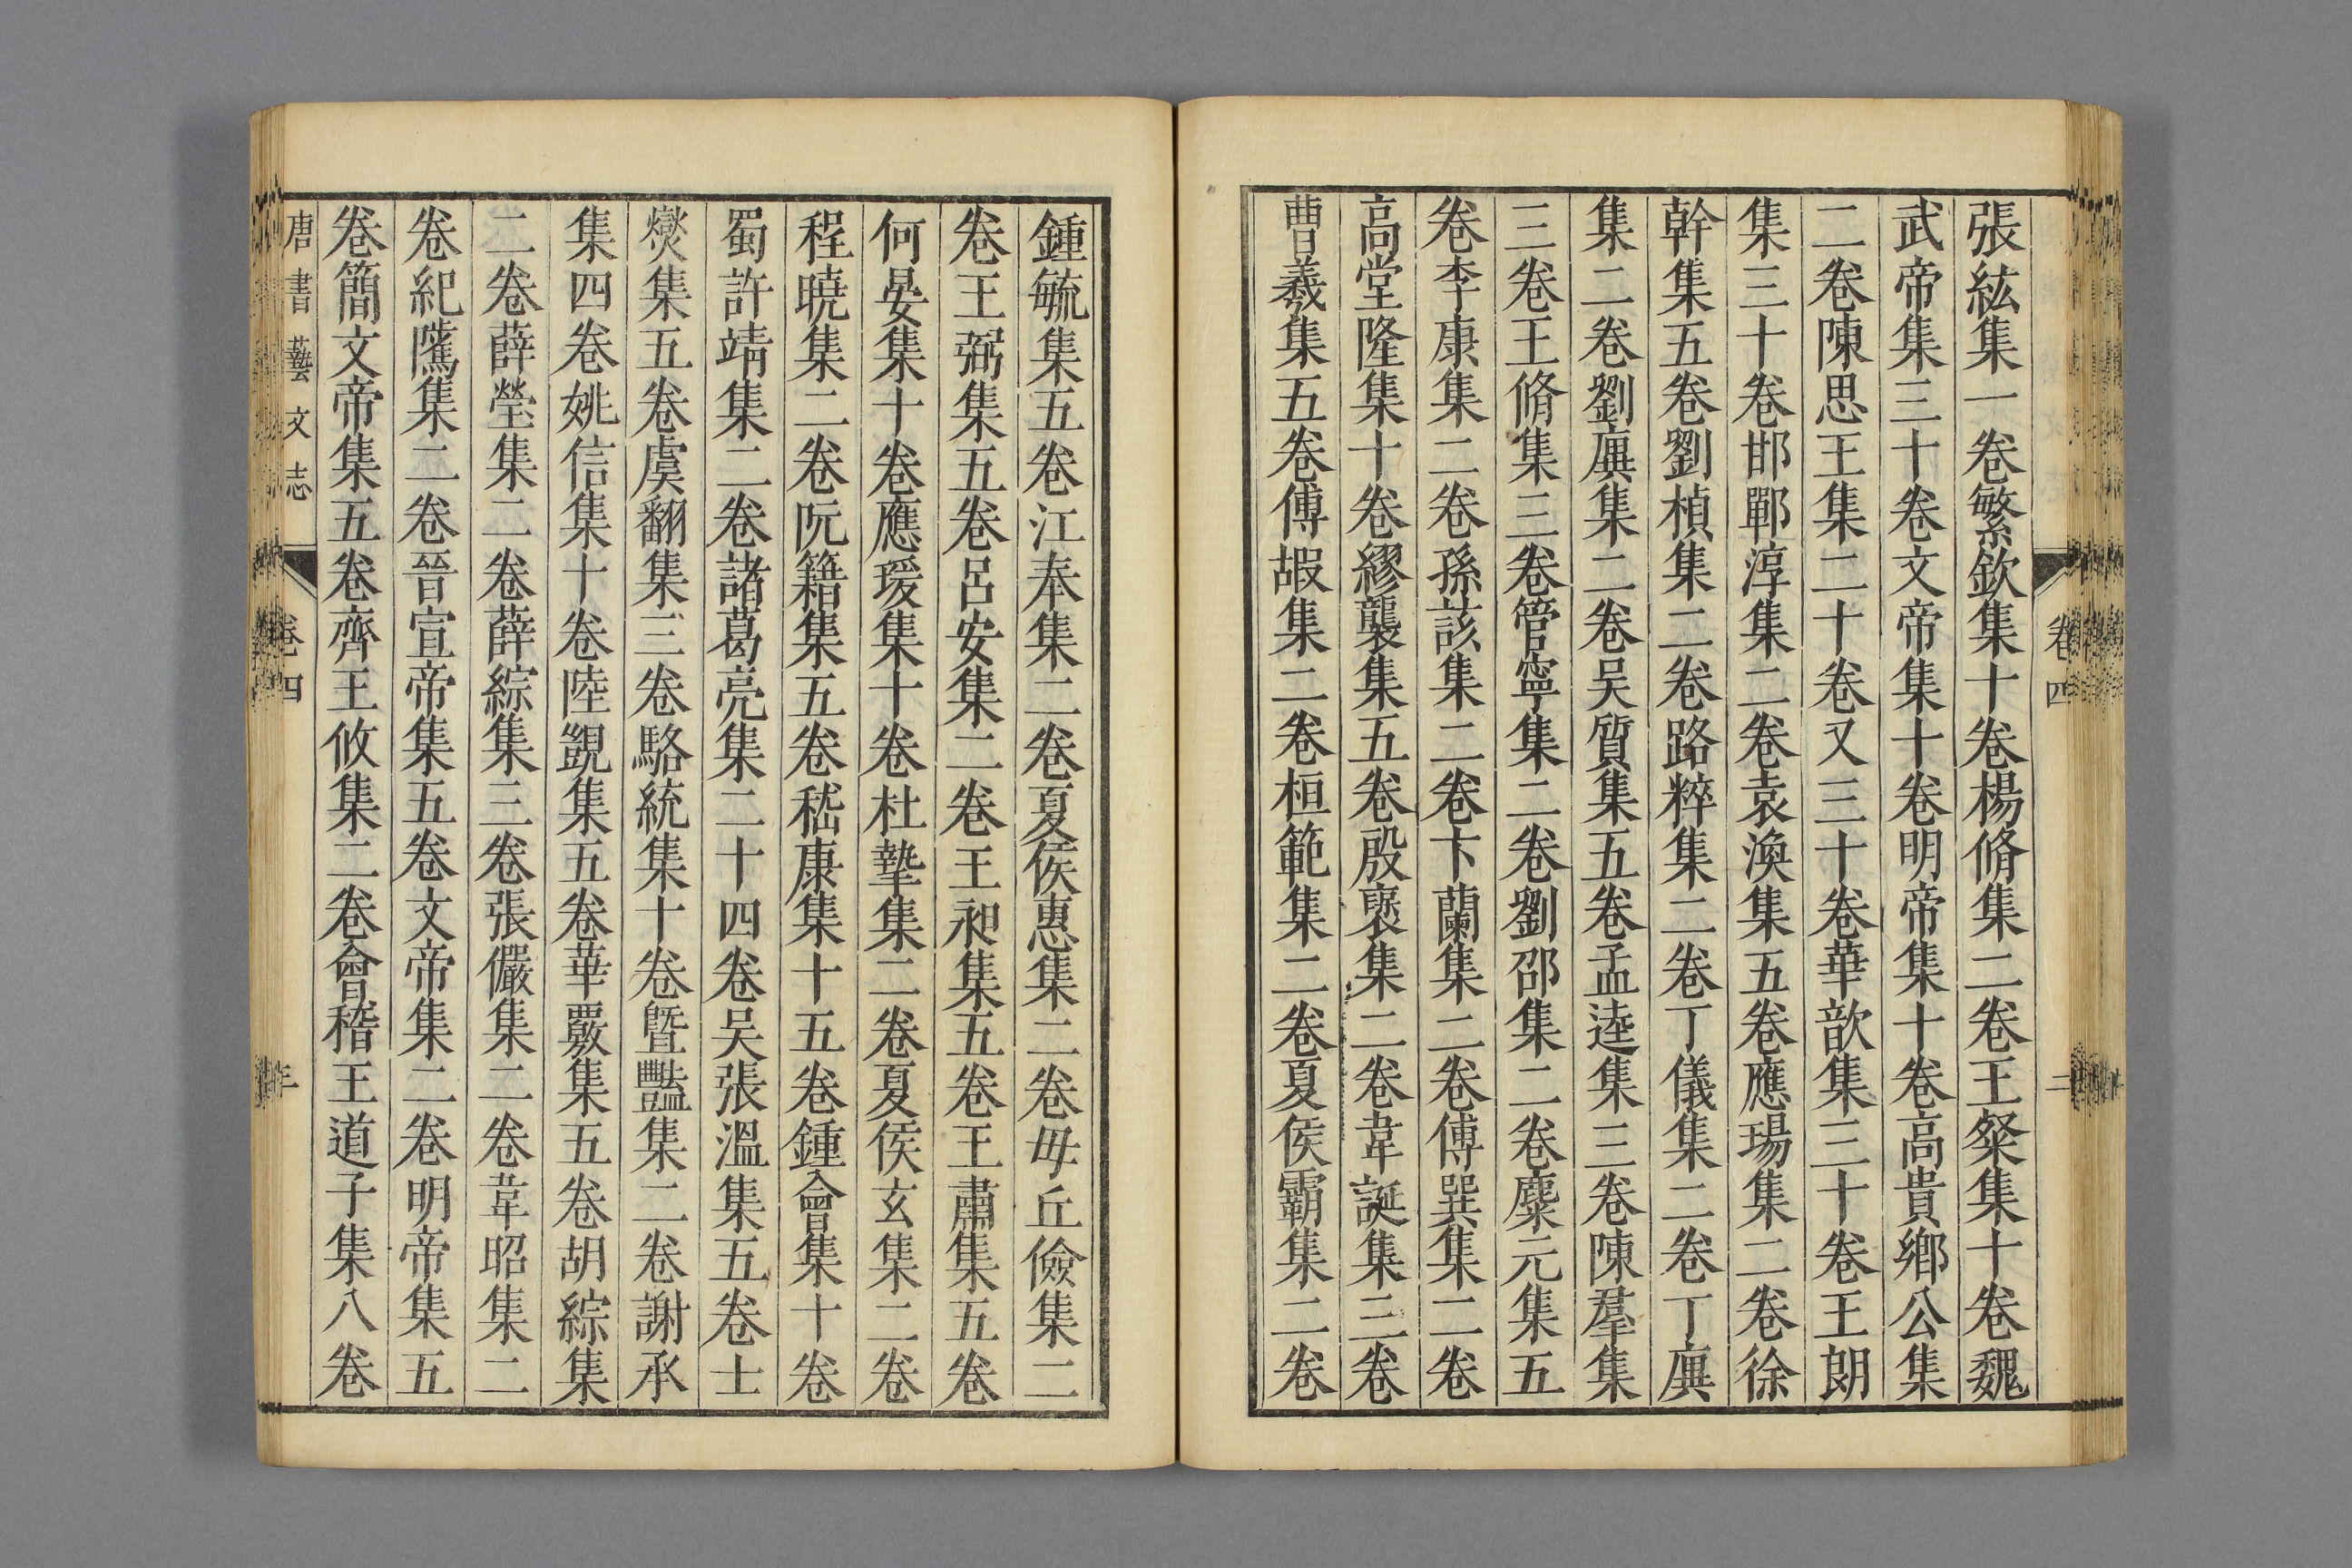 張紘集一卷繁欽集十卷楊脩集二卷王粲集十卷魏
武帝集三十卷文帝集十卷明帝集十卷高貴鄉公集
二卷陳思王集二十卷又三十卷華歆集三十卷王朗
集三十卷邯鄲淳集二卷袁渙集五卷應瑒集二卷徐
幹集五卷劉楨集二卷路粹集二卷丁儀集二卷丁廙
集二卷劉廙集二卷吳質集五卷孟逵集三卷陳羣集
三卷王脩集三卷管寧集二卷劉邵集二卷麋元集五
卷李康集二卷孫該集二卷卞蘭集二卷傅巽集二卷
高堂隆集十卷繆襲集五卷殷襃集二卷韋誕集三卷
曹羲集五卷傅嘏集二卷桓範集二卷夏侯霸集二卷
卷四
二
鍾毓集五卷江奉集二卷夏侯惠集二卷毋丘儉集二
卷王弼集五卷呂安集二卷王昶集五卷王肅集五卷
何晏集十卷應瑗集十卷杜摯集二卷夏侯玄集二卷
程曉集二卷阮籍集五卷嵇康集十五卷鍾會集十卷
蜀許靖集二卷諸葛亮集二十四卷吳張溫集五卷士
燮集五卷虞翻集三卷駱統集十卷暨豔集二卷謝承
集四卷姚信集十卷陸凱集五卷華覈集五卷胡綜集
二卷薛瑩集二卷薛綜集三卷張儼集二卷韋昭集二
卷紀隲集二卷晉宣帝集五卷文帝集二卷明帝集五
卷簡文帝集五卷齊王攸集二卷會稽王道子集八卷
唐書藝文志
卷四